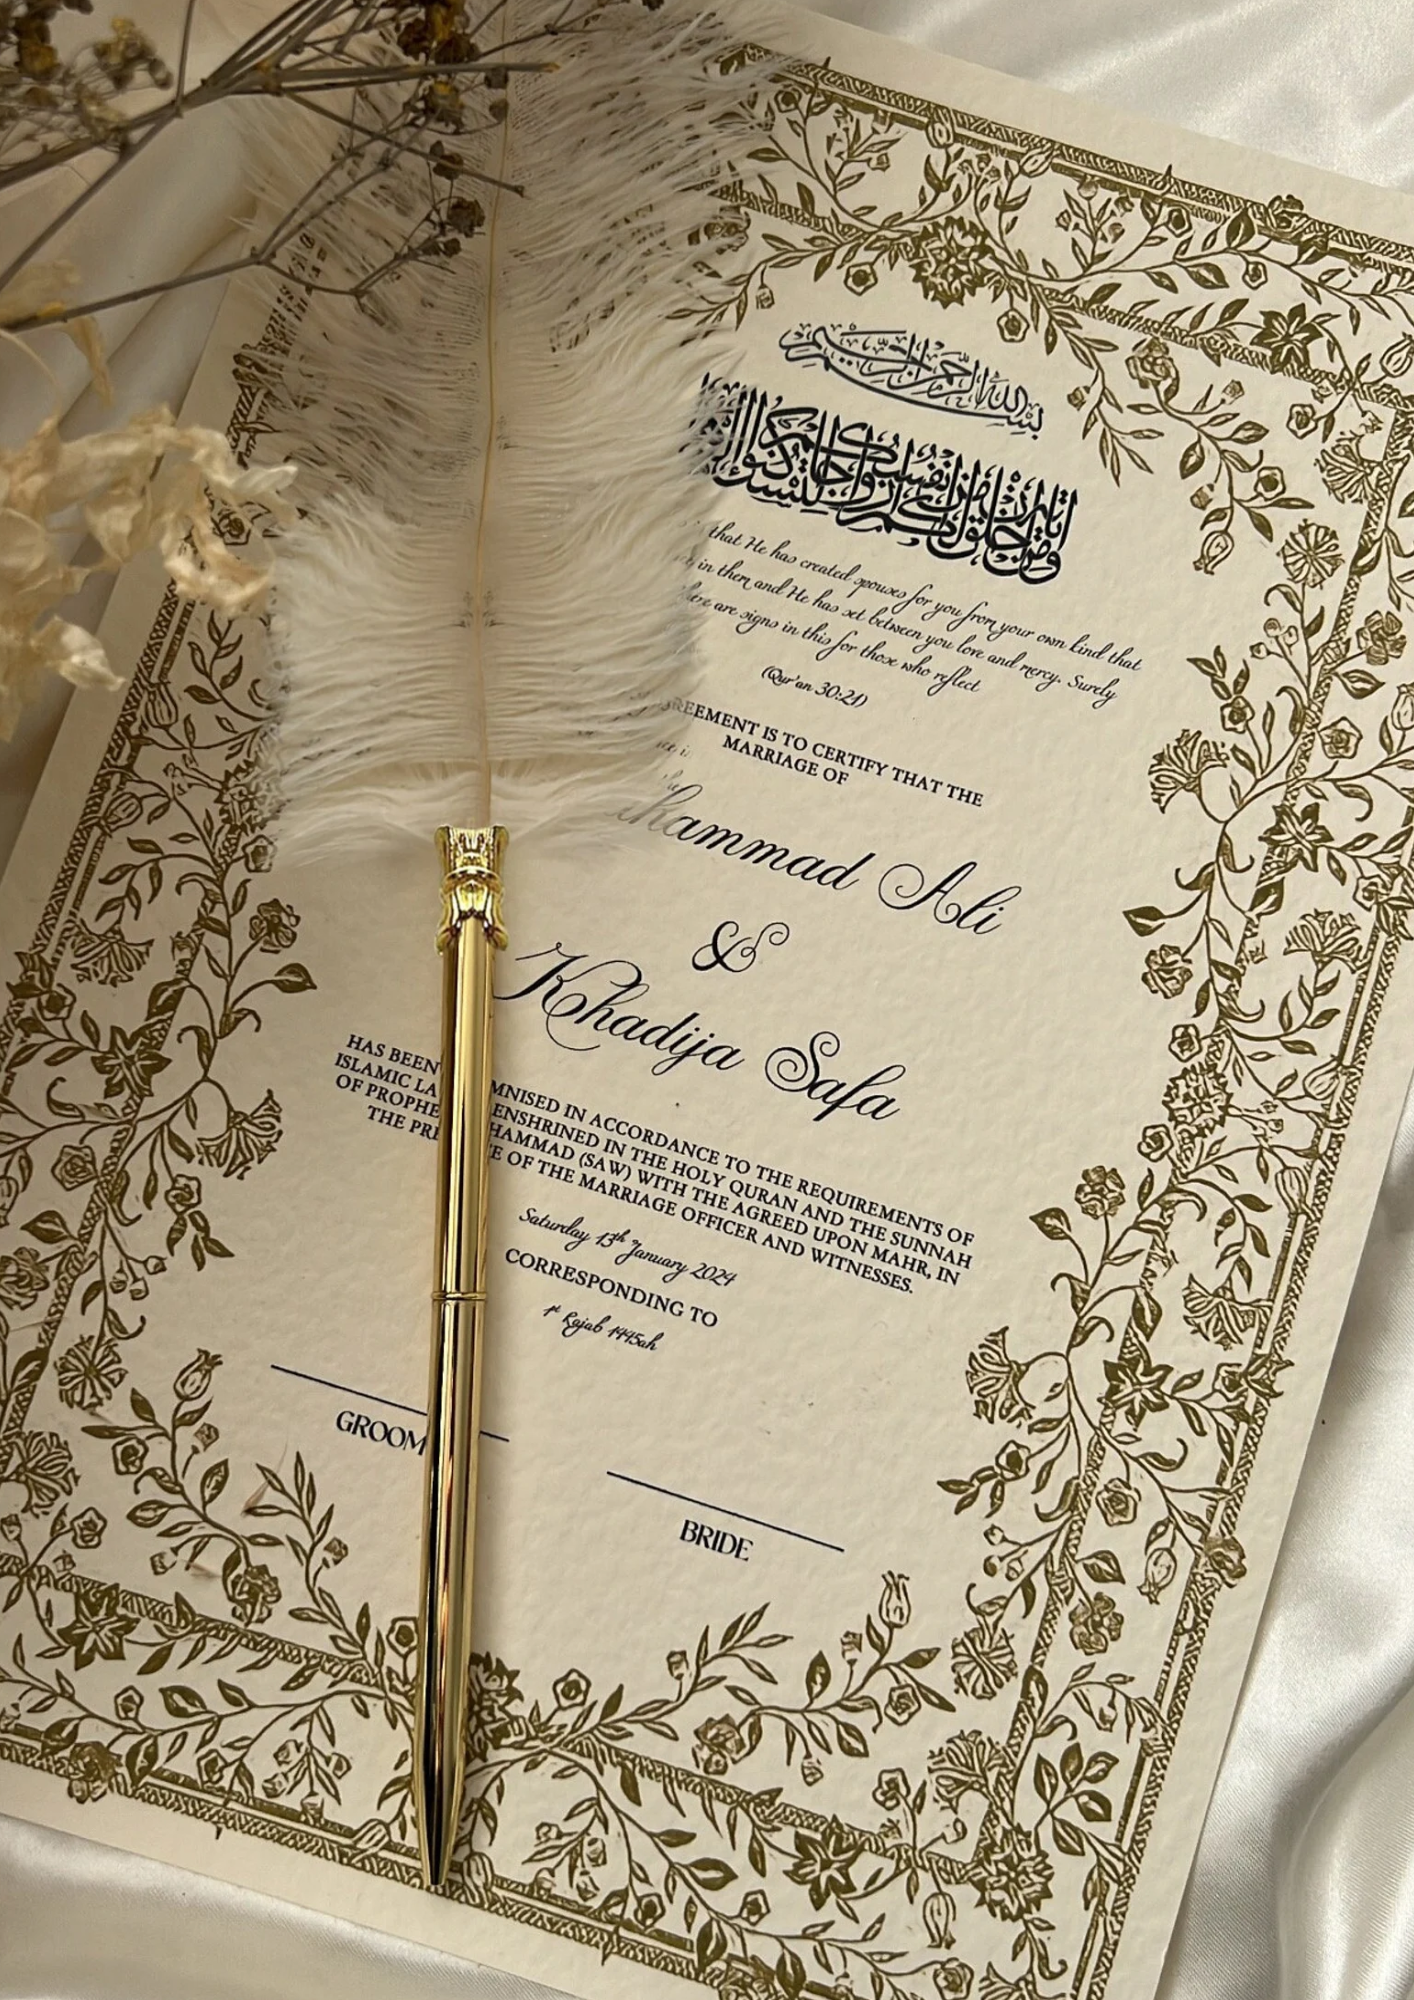 بسم الله الرحمن الرحيم
ومن آياته أن خلق لكم من أنفسكم أزواجا لتسكنوا
that He has created spouses for you from your own kind that
in them and He has set between you love and mercy. Surely
there are signs in this for those who reflect
(Qur'an 30:21)
REEMENT IS TO CERTIFY THAT THE
MARRIAGE OF
hammad Ali
&
Khadija Safa
HAS BEEN MNISED IN ACCORDANCE TO THE REQUIREMENTS OF
ISLAMIC LA ENSHRINED IN THE HOLY QURAN AND THE SUNNAH
OF PROPHE HAMMAD (SAW) WITH THE AGREED UPON MAHR, IN
THE PRE E OF THE MARRIAGE OFFICER AND WITNESSES.
Saturday 13th January 2024
CORRESPONDING TO
1st Rajab 1445ah
GROOM
BRIDE